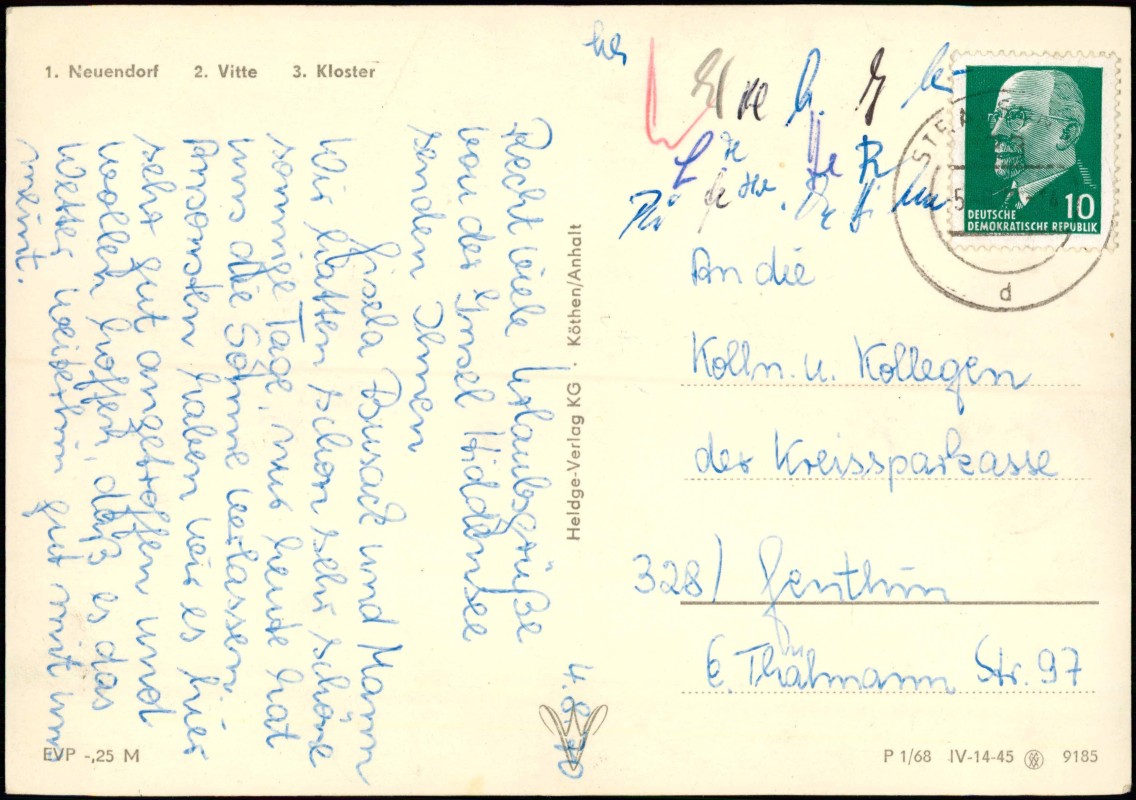 1. Neuendorf 2. Vitte 3. Kloster
Recht viele Urlaubsgrüße
von der Insel Hiddensee
senden Ihnen
Gisela Busack und Mann
Wir hatten schon sehr schöne
sonnige Tage, nur heute hat
uns die Sonne verlassen.
Ansonsten haben wir es hier
sehr gut angetroffen und
wollen hoffen, daß es das
Wetter weiterhin gut mit uns
meint.
4.8.70
EVP -,25 M
Heldge-Verlag KG · Köthen/Anhalt
DEUTSCHE
DEMOKRATISCHE REPUBLIK
10
d
An die
Kolln. u. Kollegen
der Kreissparkasse
328/ Genthin
E. Thälmann Str. 97
P 1/68 IV-14-45 9185